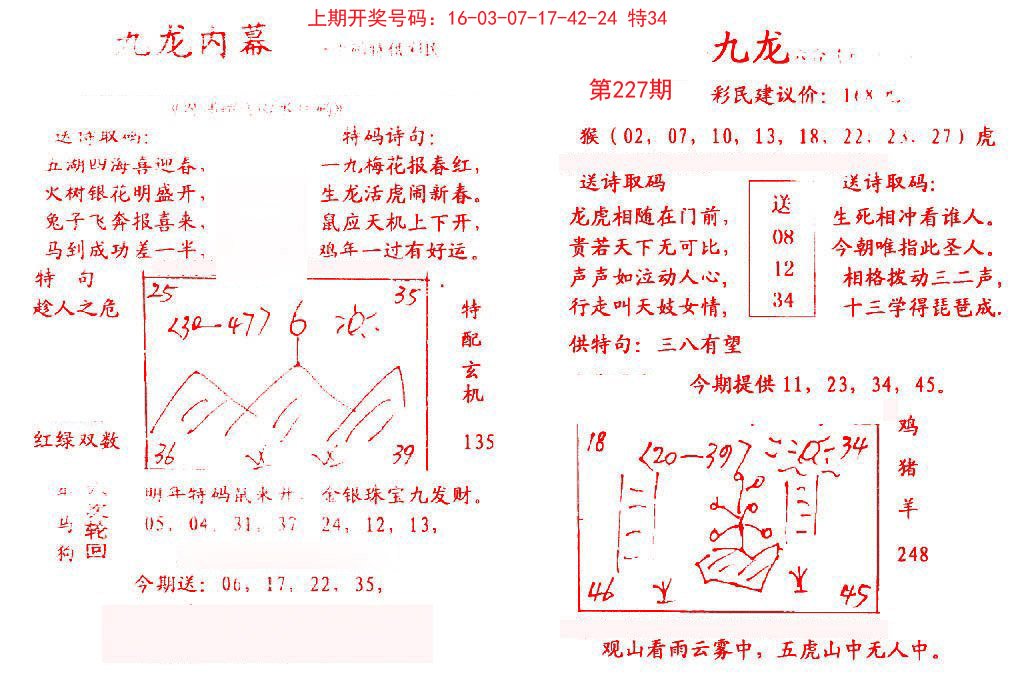 上期开奖号码：16-03-07-17-42-24 特34
九龙内幕
送诗取码：
五湖四海喜迎春，
火树银花明盛开，
兔子飞奔报喜来，
马到成功差一半，
特码诗句：
一九梅花报春红，
生龙活虎闹新春。
鼠应天机上下开，
鸡年一过有好运。
特句
趁人之危
红绿双数
25
35
<30—477 6
36
39
特配玄机
135
明年特码鼠来开，金银珠宝九发财。
马
狗
轮回
05，04，31，37，24，12，13，
今期送：06，17，22，35，
九龙
第227期
彩民建议价：168
猴（02，07，10，13，18，22，23，27）虎
送诗取码
龙虎相随在门前，
贵若天下无可比，
声声如泣动人心，
行走叫天妓女情，
送
08
12
34
送诗取码：
生死相冲看谁人。
今朝唯指此圣人。
相格拨动三二声，
十三学得琵琶成.
供特句：三八有望
今期提供11，23，34，45。
18
34
46
45
鸡
猪
羊
248
观山看雨云雾中，五虎山中无人中。